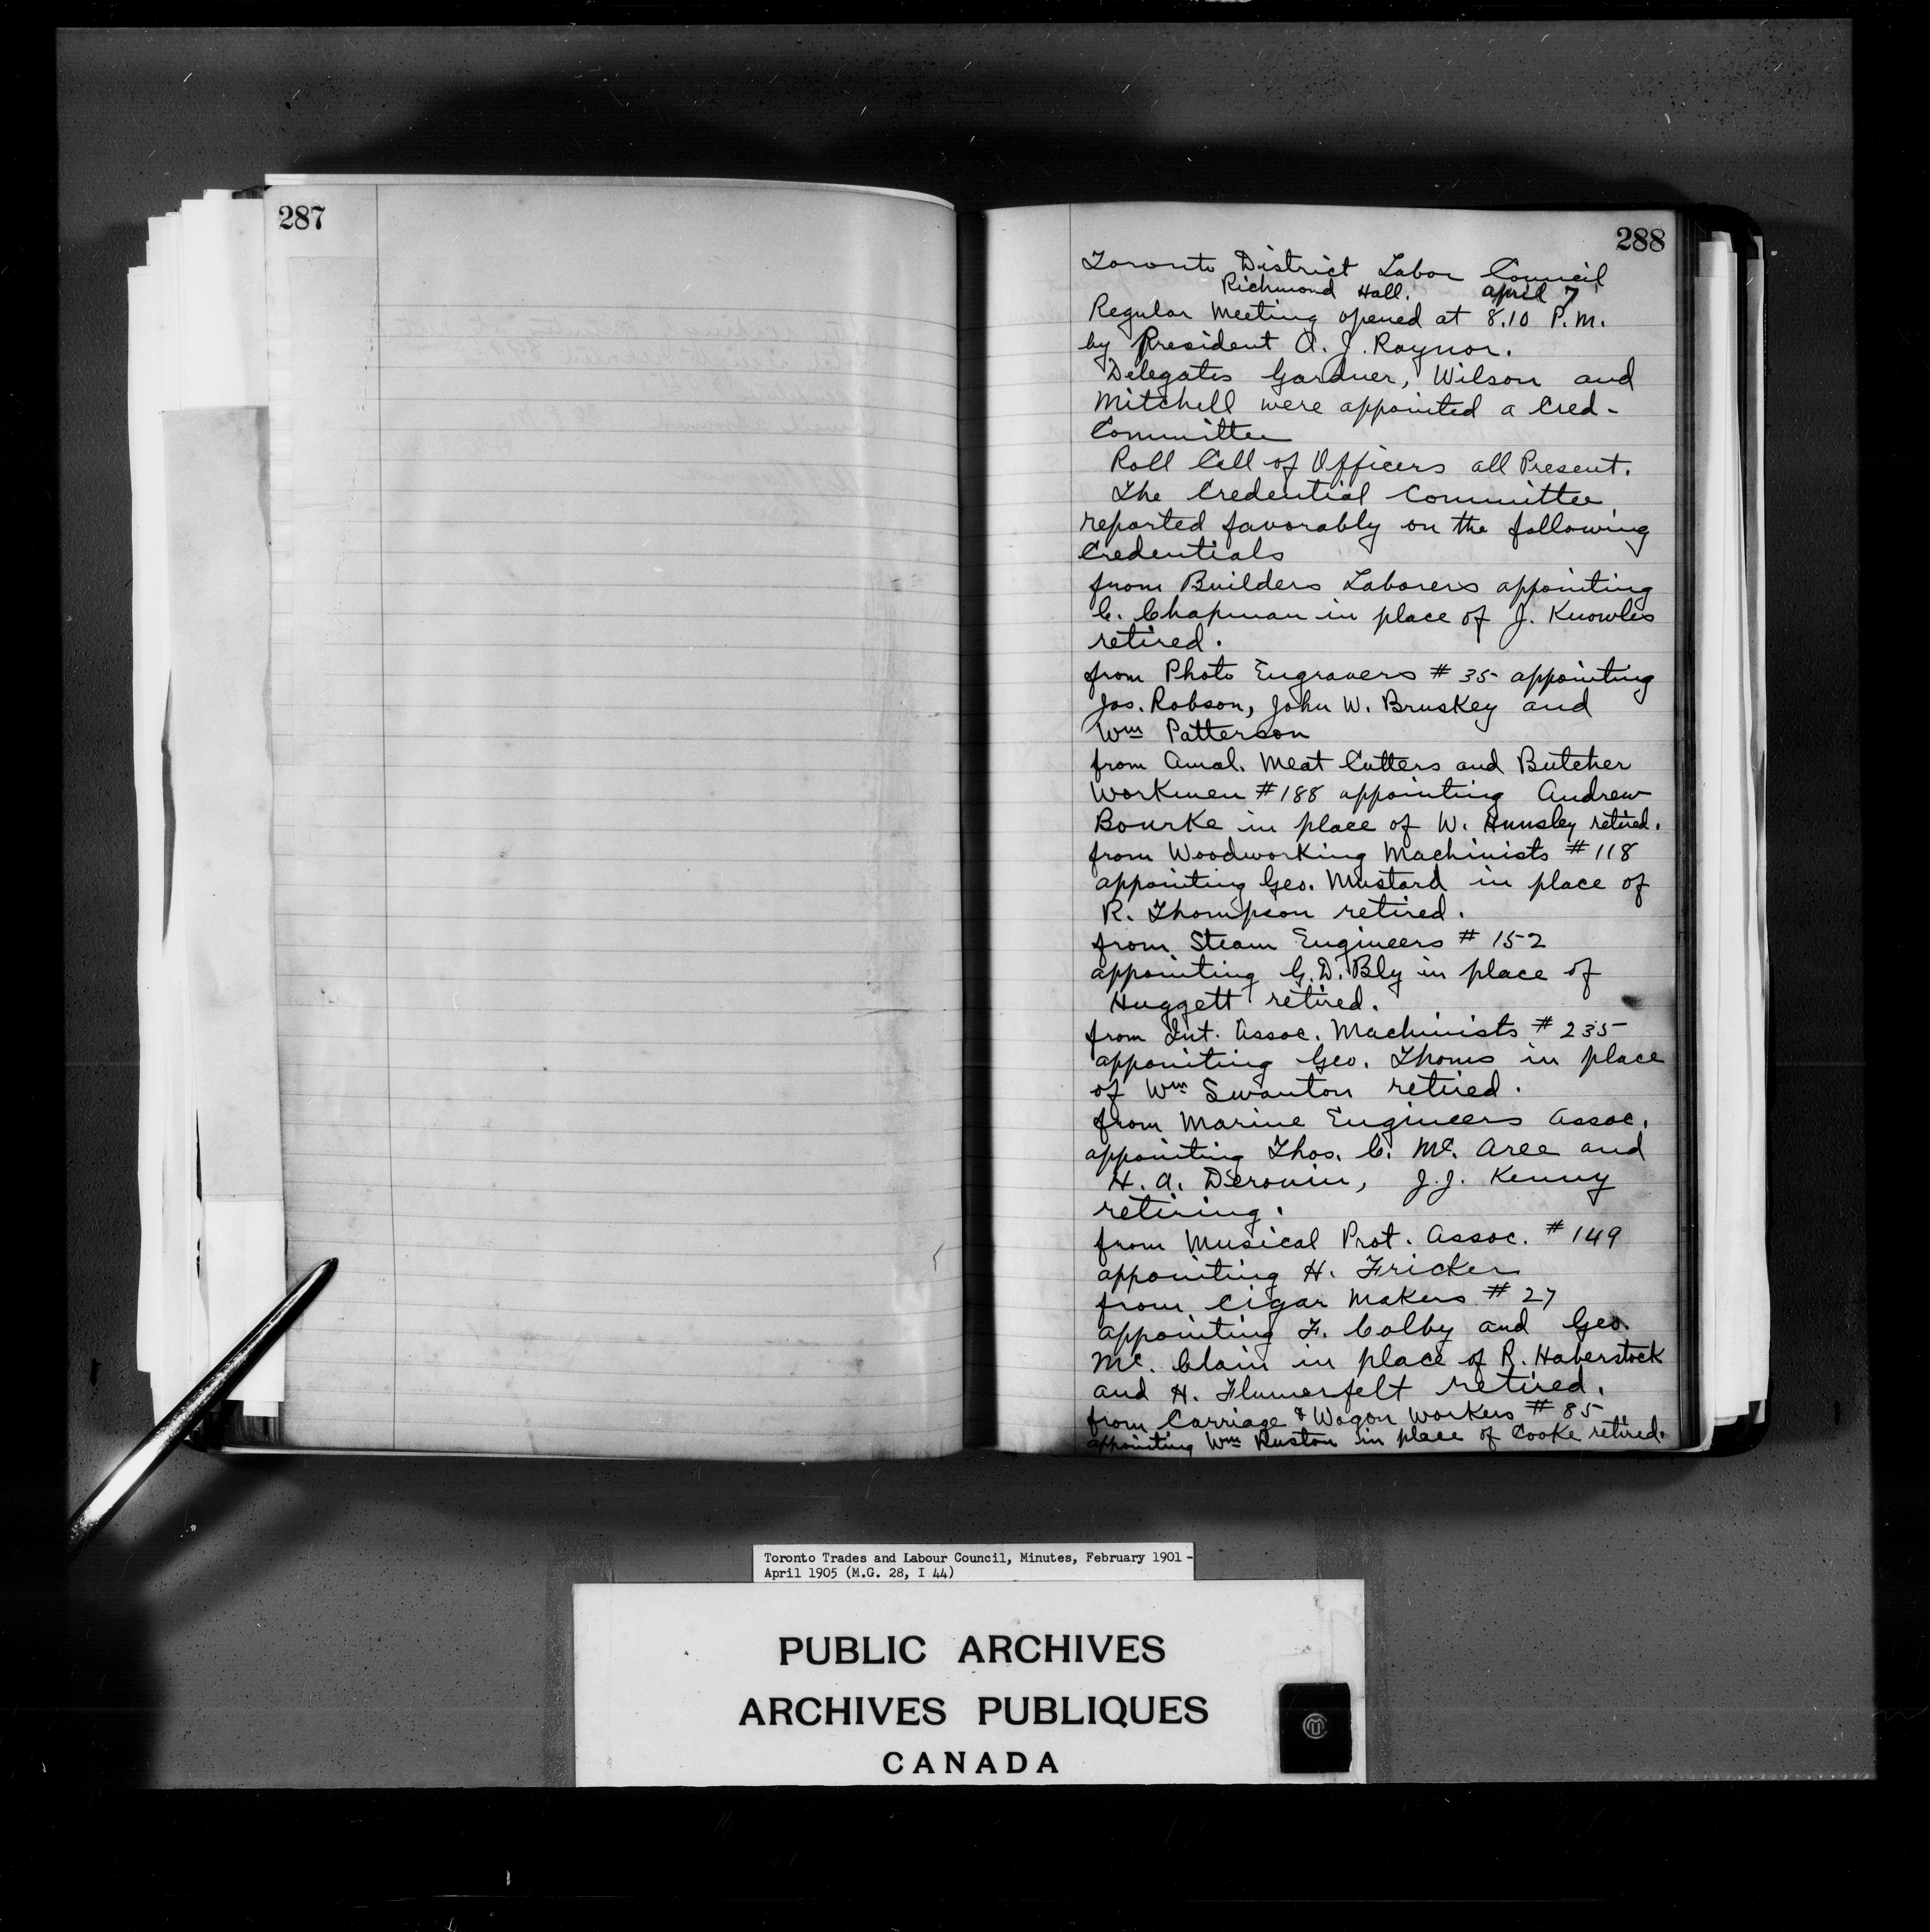 287
288
Toronto District Labor Council
Richmond Hall. April 7
Regular Meeting opened at 8.10 P.M.
by President A. J. Raynor.
Delegates Gardner, Wilson and
Mitchell were appointed a Cred-
Committee
Roll Call of Officers all Present.
The Credential Committee
reported favorably on the following
Credentials
from Builders Laborers appointing
C. Chapman in place of J. Knowles
retired.
from Photo Engravers # 35 appointing
Jos. Robson, John W. Bruskey and
Wm Patterson
from Amal. Meat Cutters and Butcher
Workmen #188 appointing Andrew
Bourke in place of W. Hunsley retired.
from Woodworking Machinists # 118
appointing Geo. Mustard in place of
R. Thompson retired.
from Steam Engineers # 152
appointing G. D. Bly in place of
Huggett retired.
from Int. Assoc. Machinists # 235
appointing Geo. Thoms in place
of Wm Swanton retired.
from Marine Engineers Assoc.
appointing Thos. C. Mc. Aree and
H. A. Deronin, J. J. Kenny
retiring.
from Musical Prot. Assoc. # 149
appointing H. Fricker
from Cigar Makers # 27
appointing F. Colby and Geo.
Mc. Clain in place of R. Haberstock
and H. Flumerfelt retired.
from Carriage & Wagon Workers # 85
appointing Wm Ruston in place of Cooke retired.
Toronto Trades and Labour Council, Minutes, February 1901 -
April 1905 (M.G. 28, I 44)
PUBLIC ARCHIVES
ARCHIVES PUBLIQUES
CANADA